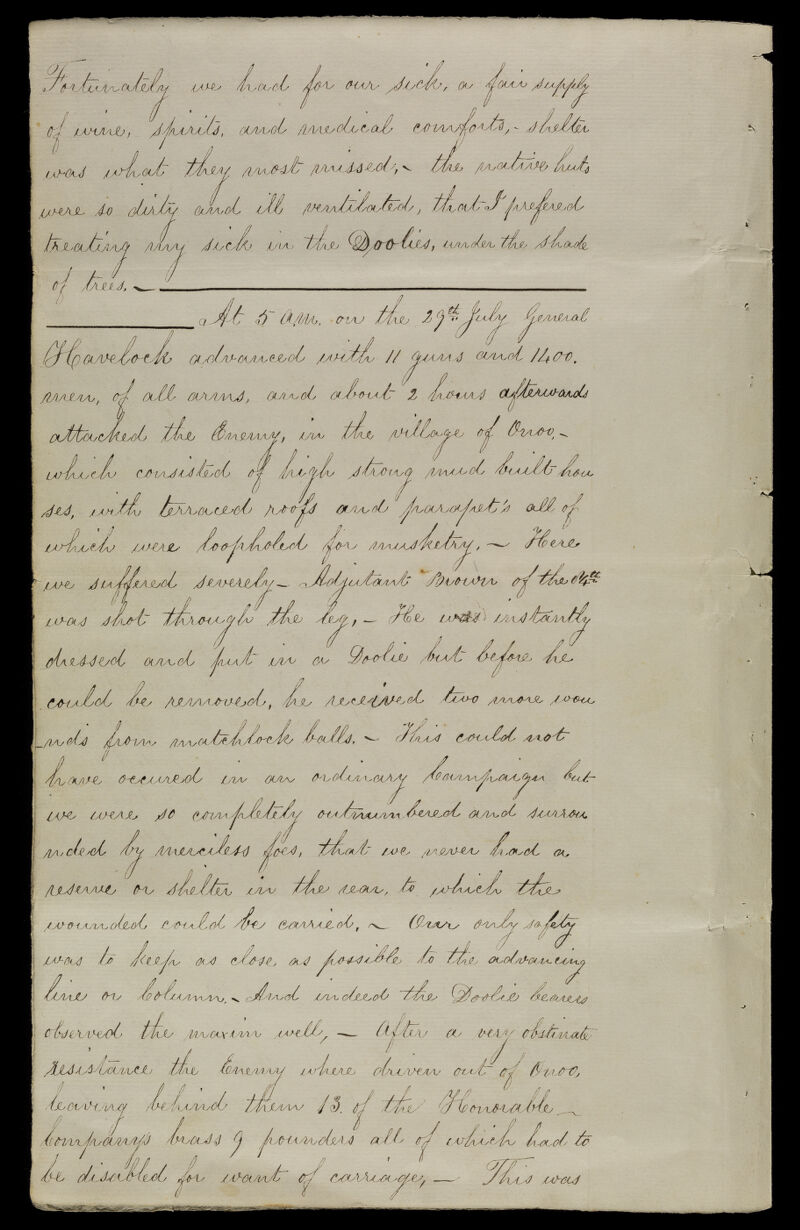 Fortunately we had for our sick, a fair supply
of wine, spirits, and medical comforts, - shelter
was what they most missed, - the native huts
were so dirty and ill ventilated, that I prefered
treating my sick in the Doolies, under the shade
of trees. -
At 5 a.m. on the 29th July General
Havelock advanced with 11 guns and 1400.
men, of all arms, and about 2 hours afterwards
attacked the Enemy, in the village of Onoo, -
which consisted of high strong mud built hou
ses, with terraced roofs and parapet's all of
which were loopholed for musketry. - Here
we suffered severely - Adjutant Brown of the
was shot through the leg, - He was instantly
dressed and put in a Doolie but before he
could be removed, he received two more wou
-nds from matchlock balls. - This could not
have occured in an ordinary Campaign but
we were so completely outnumbered and surrou
nded by merciless foes, that we never had a
reserve or shelter in the rear, to which the
wounded could be carried, - Our only safety
was to keep as close as possible to the advancing
line or Column. - And indeed the Doolie bearers
observed the maxim well, - After a very obstinate
resistance the Enemy where driven out of Onoo,
leaving behind them 13. of the Honorable -
Company's brass 9 pounders all of which had to
be disabled for want of carriage, - This was